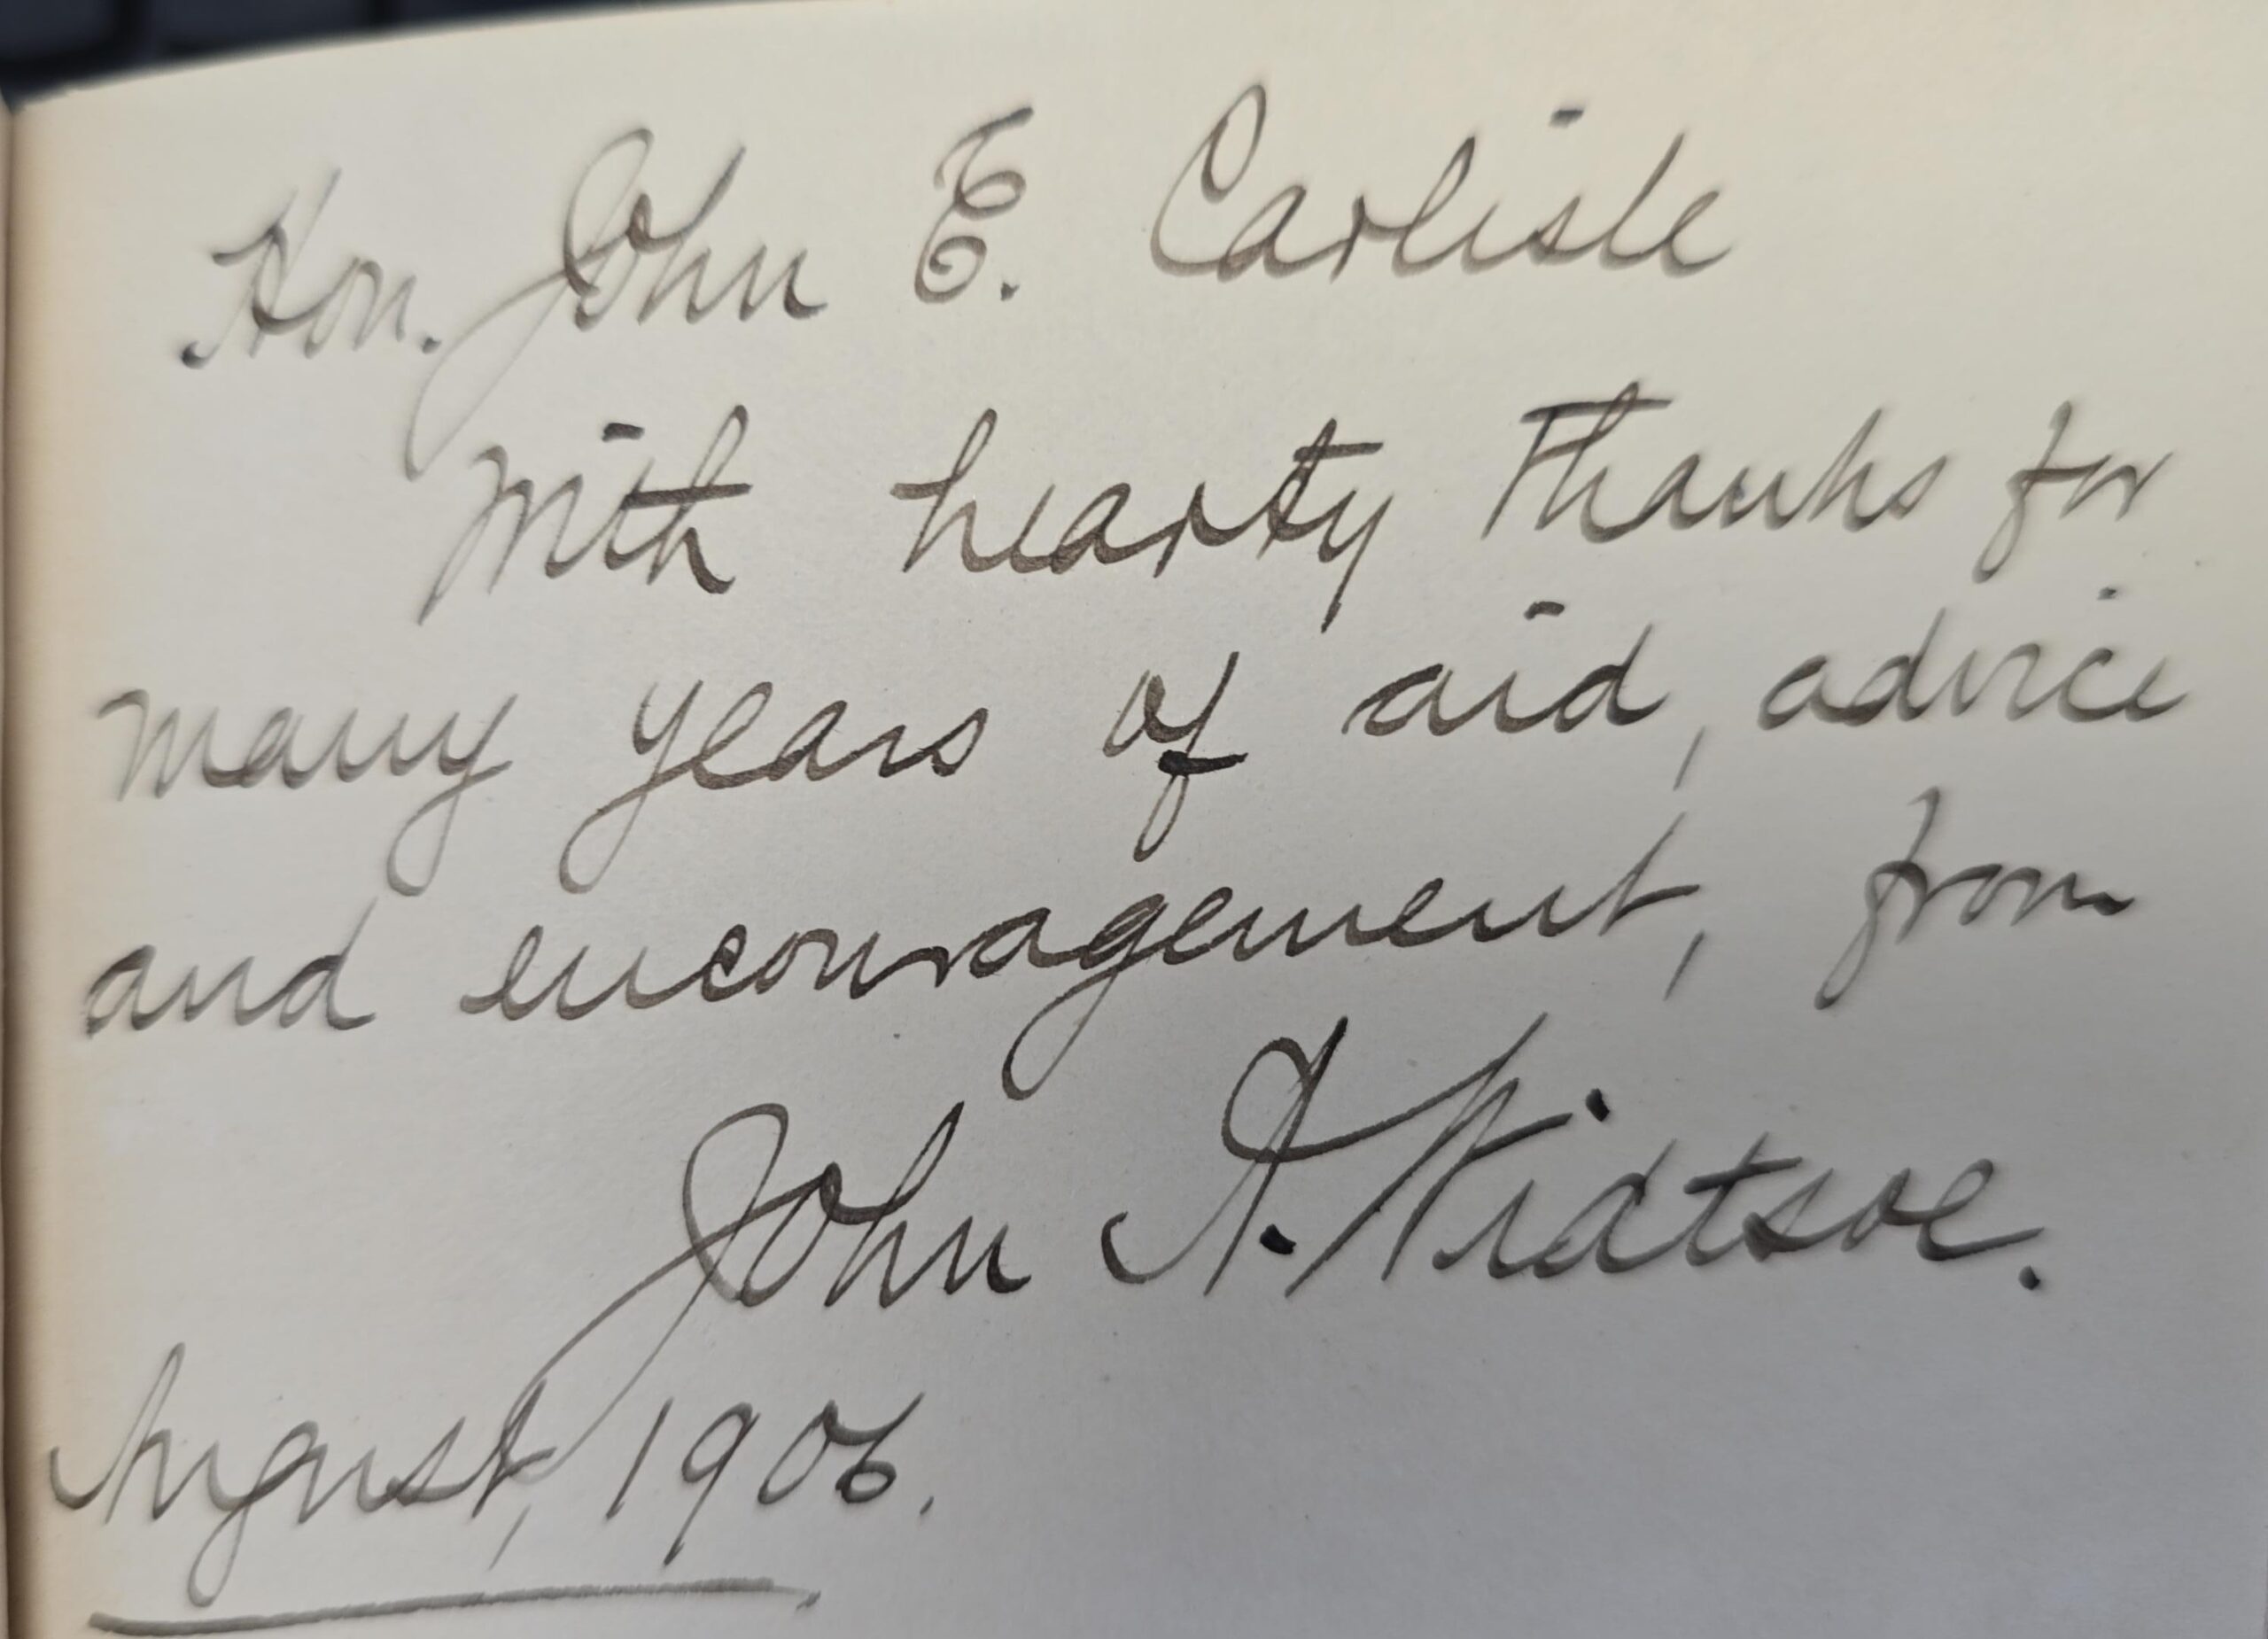 Hon. John E. Carlisle
With hearty thanks for
many years of aid, advice
and encouragement, from
John A. Widtsoe.
August, 1906.